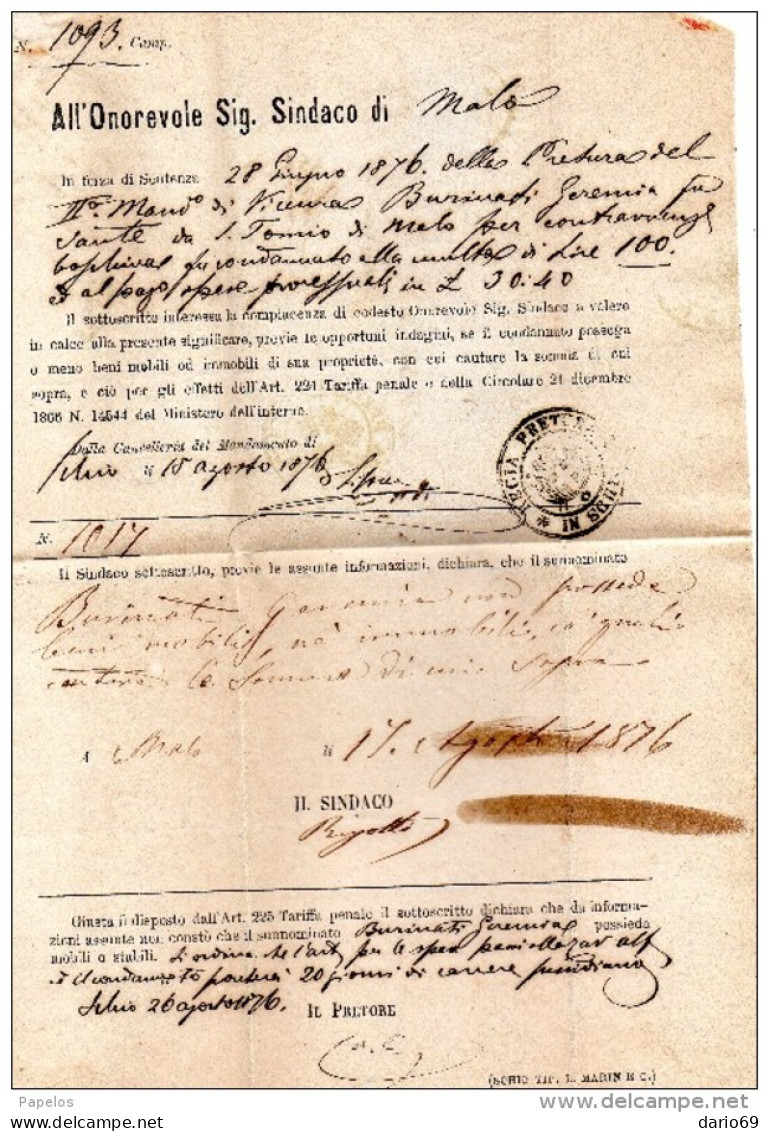 N. 1093. Comp.
All'Onorevole Sig. Sindaco di Malo
In forza di Sentenza 28 Giugno 1876. della Pretura del
IIo. Mando di Vicenza Burinati Geremia fu
Sante da S. Tomio di Malo per contravvenz
boschiva fu condannato alla multa di Lire 100.
e al pago spese processuali in £ 30:40
Il sottoscritto interessa la compiacenza di codesto Onorevole Sig. Sindaco a volere
in calce alla presente significare, previe le opportuni indagini, se il condannato possega
o meno beni mobili od immobili di sua proprietà, con cui cautare la somma di cui
sopra, e ciò per gli effetti dell'Art. 224 Tariffa penale e della Circolare 21 dicembre
1866 N. 14544 del Ministero dell'interno.
Dalla Cancelleria del Mandamento di
Schio li 15 agosto 1876
REGIA PRETURA IN SCHIO
N. 1017
Il Sindaco sottoscritto, previe le assunte informazioni, dichiara, che il sunnominato
Burinati Geremia non possede
beni mobili, nè immobili, coi quali
cautare la somma di cui sopra
A Malo li 17. Agosto 1876
IL SINDACO
Giusta il disposto dall'Art. 225 Tariffa penale il sottoscritto dichiara che da informa-
zioni assunte non constò che il sunnominato Burinati Geremia possieda
mobili o stabili. Si ordina che per le spese
il condannato 20 giorni di carcere
Schio 26 agosto 1876.
IL PRETORE
(SCHIO TIP. L. MARIN E C.)
Papelos
delcampe.net
dario69